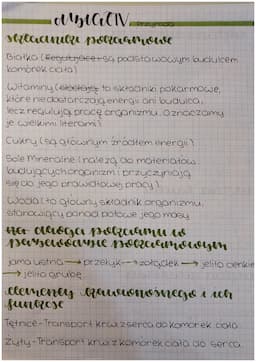 składniki pokarmowe
Białka (Regulujące) są podstawowym budulcem
komórek ciała)
Witaminy ( to składniki pokarmowe,
które nie dostarczają energii ani budulca,
lecz regulują pracę organizmu. Oznaczamy
je wielkimi literami)
Cukry (są głównym źródłem energii)
Sole Mineralne (należą do materiałów
budujących organizm i przyczyniają
się do jego prawidłowej pracy)
Woda (to główny składnik organizmu,
stanowiący ponad połowę jego masy
pokarmu w
przewodzie pokarmowym
jama ustna → przełyk → żołądek → jelito cienkie
→ jelito grube
elementy krwionośnego i ich
funkcje
Tętnice - Transport krwi z serca do komórek ciała
Żyły - Transport krwi z komórek ciała do serca